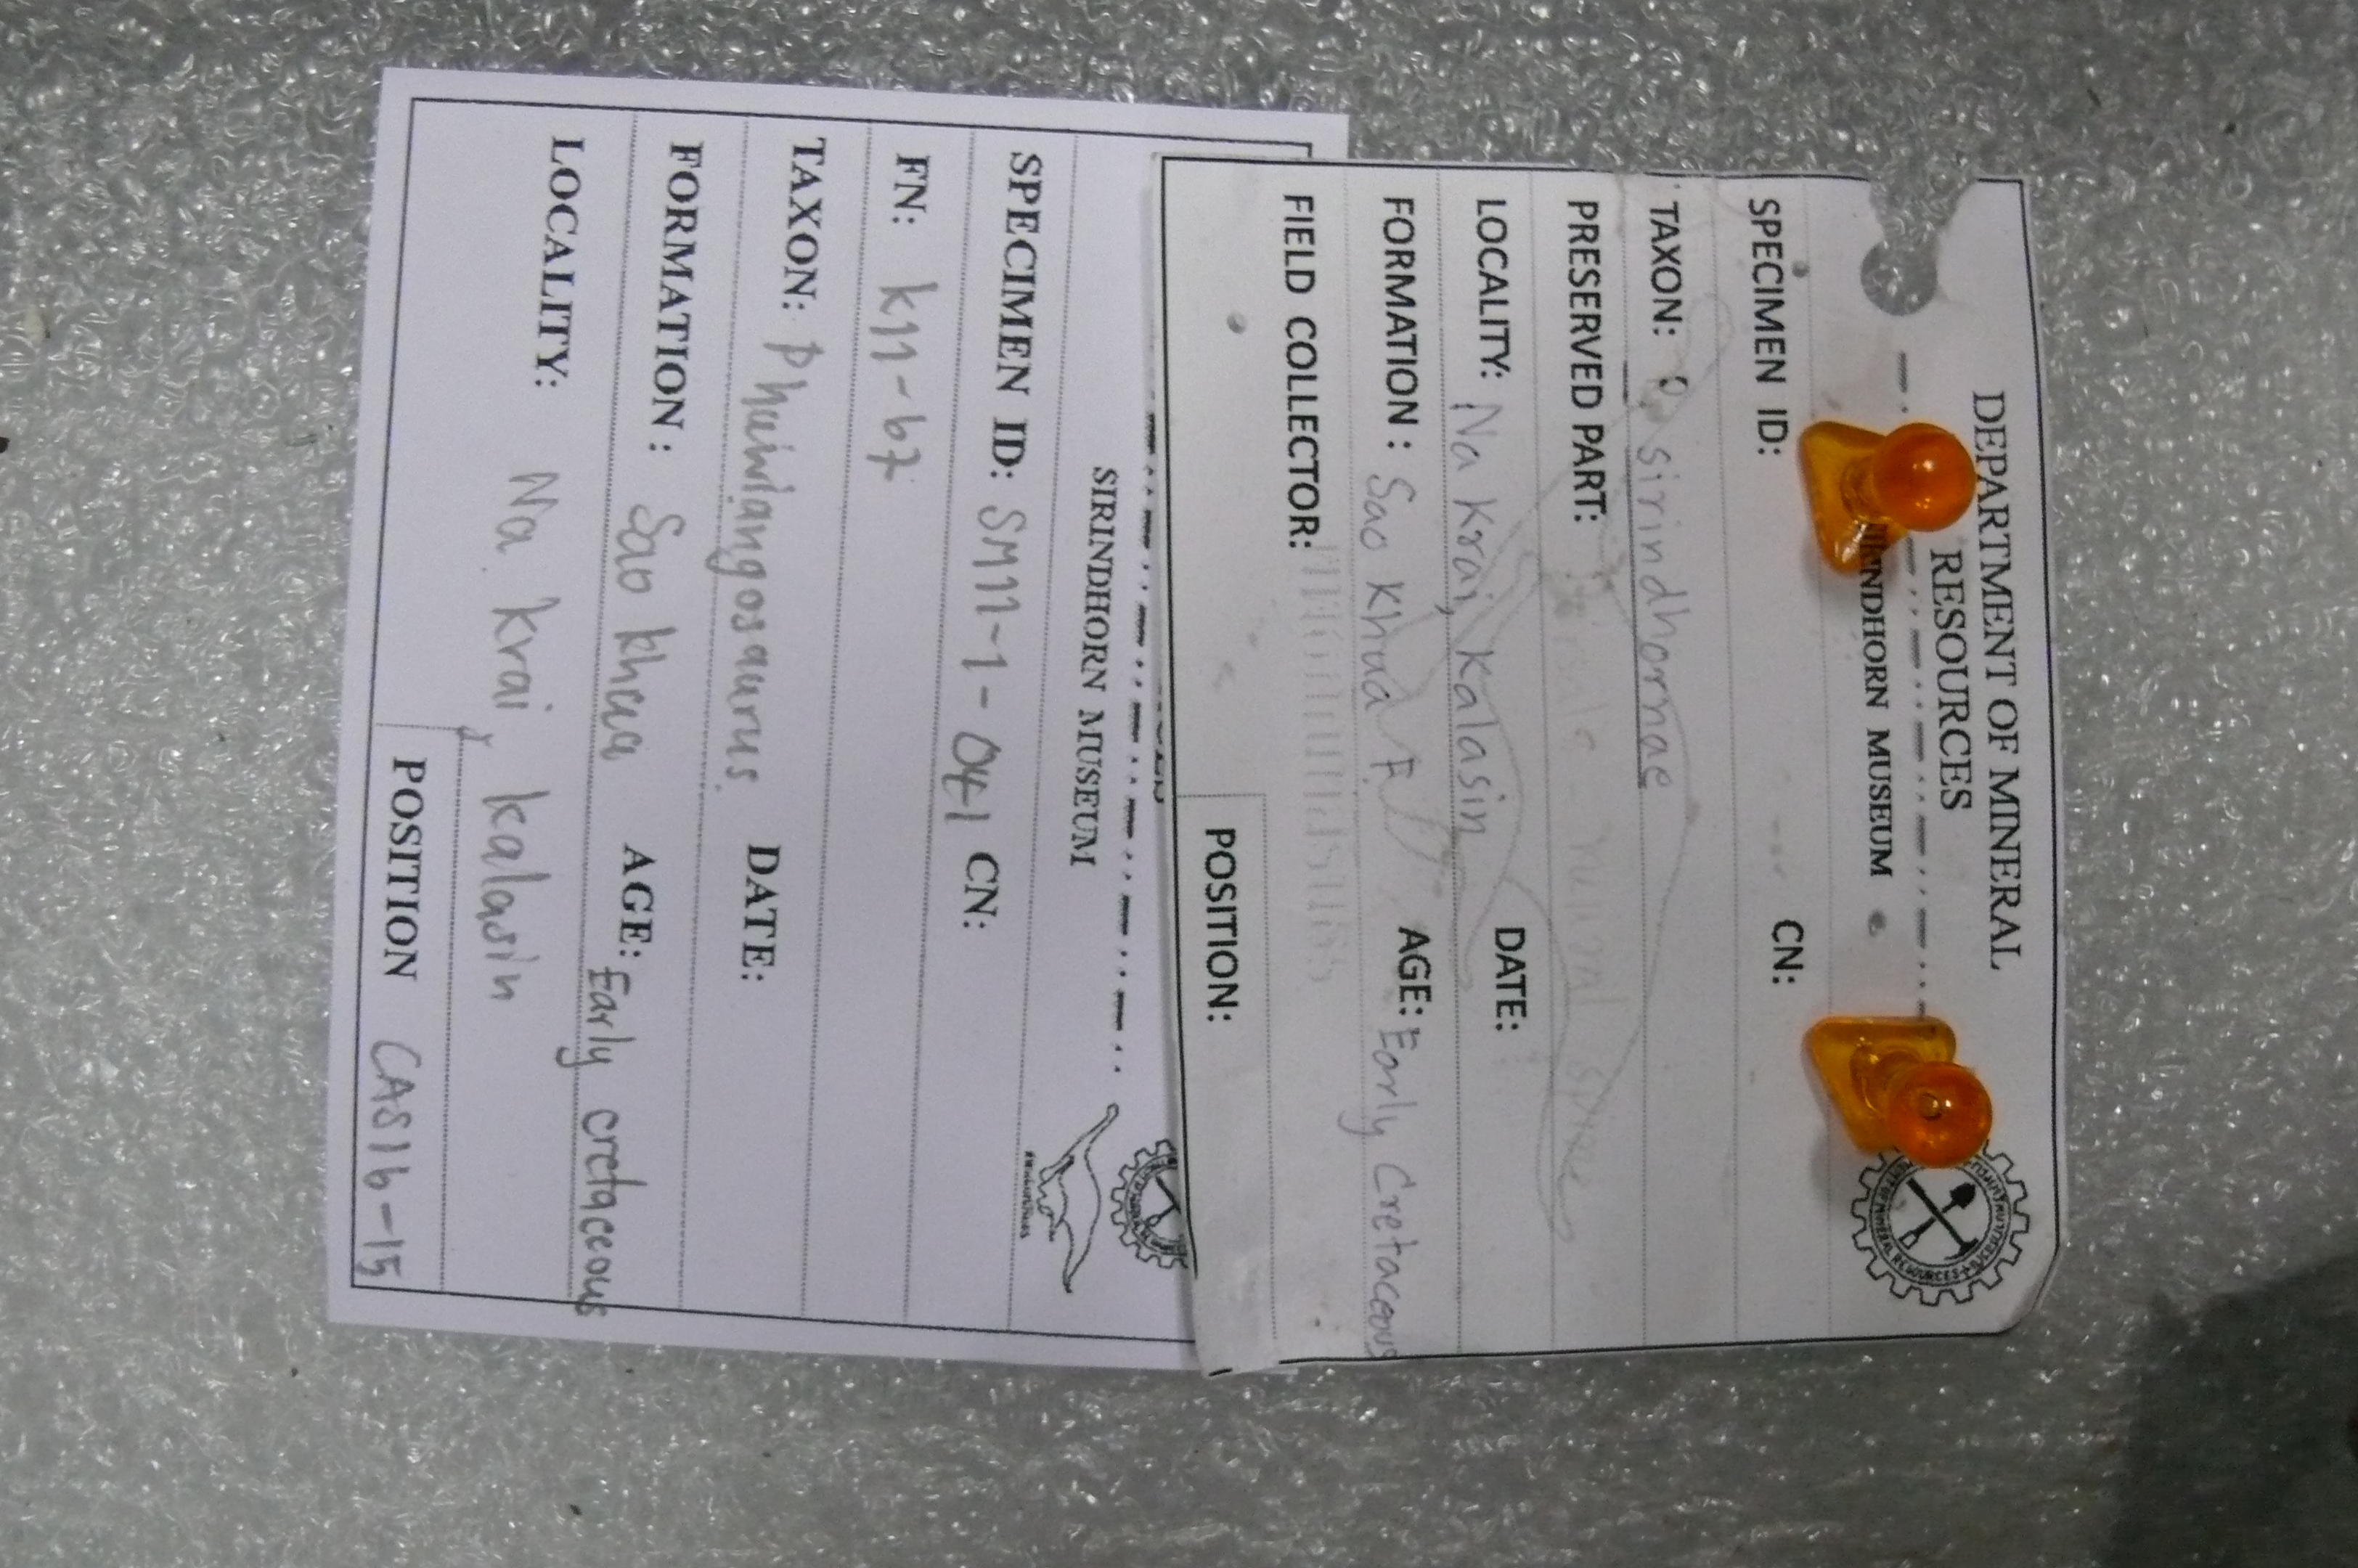 DEPARTMENT OF MINERAL
RESOURCES
NDHORN MUSEUM
SPECIMEN ID: CN:
TAXON: P. sirindhornae
PRESERVED PART: neural spine
LOCALITY: Na Krai, Kalasin DATE:
FORMATION: Sao Khua F. AGE: Early Cretaceous
FIELD COLLECTOR:
POSITION:
SIRINDHORN MUSEUM
SPECIMEN ID: CN:
FN:
TAXON: Phuwiangosaurus. DATE:
FORMATION: Sao Khua AGE: Early cretaceous
LOCALITY: Na Krai, Kalasin
POSITION CAS16-15